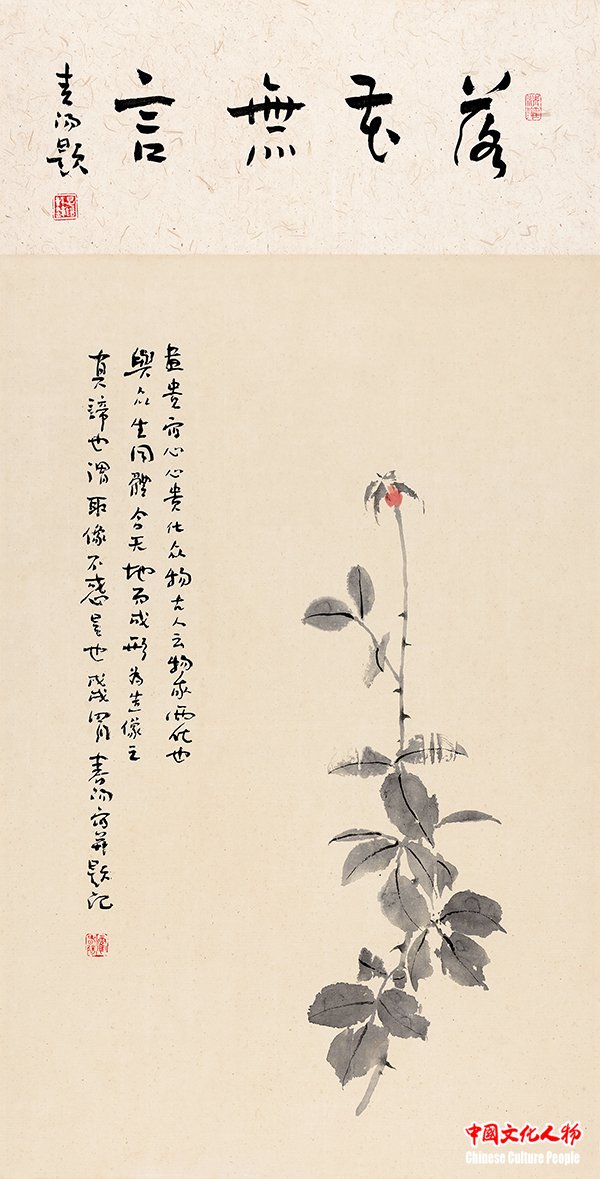 落花無言
題
畫貴寫心心貴化众物古人云物我兩化也
與众生同體含天地而成形為造像之
真諦也謂取像不惑是也戊戌寫並題記
中國文化人物
Chinese Culture People